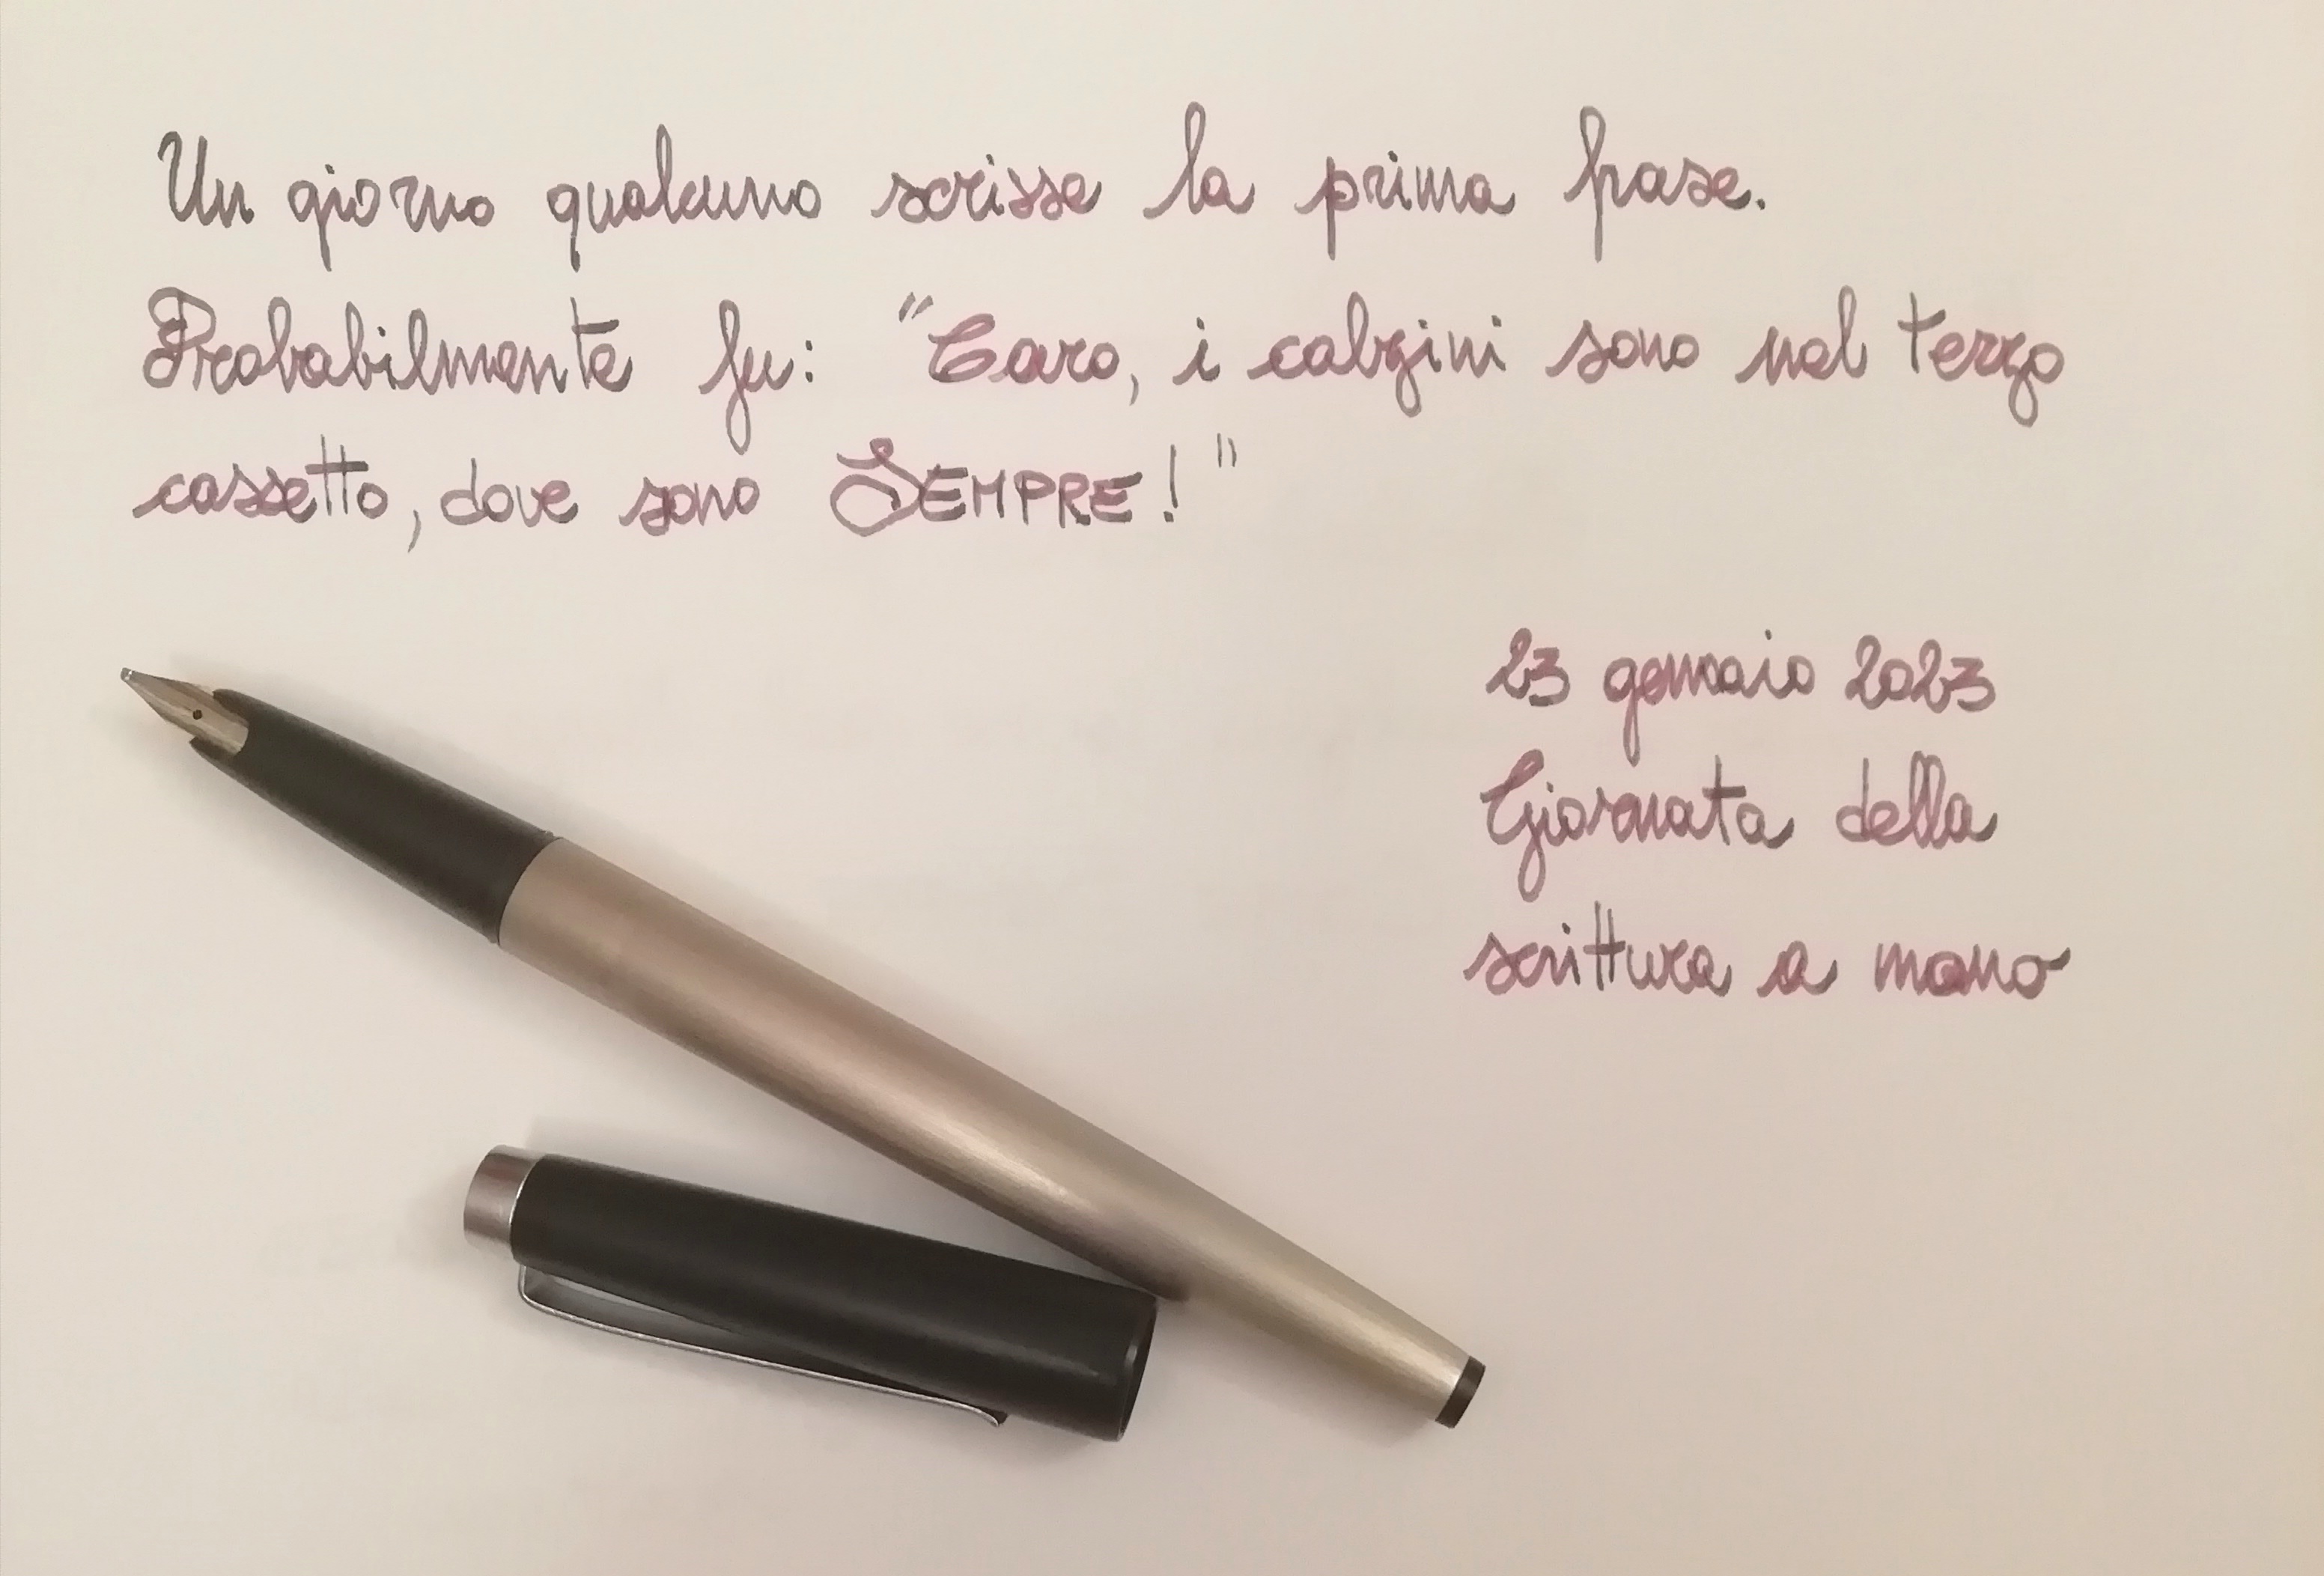 Un giorno qualcuno scrisse la prima frase.
Probabilmente fu: "Caro, i calzini sono nel terzo
cassetto, dove sono SEMPRE!"
23 gennaio 2023
Giornata della
scrittura a mano